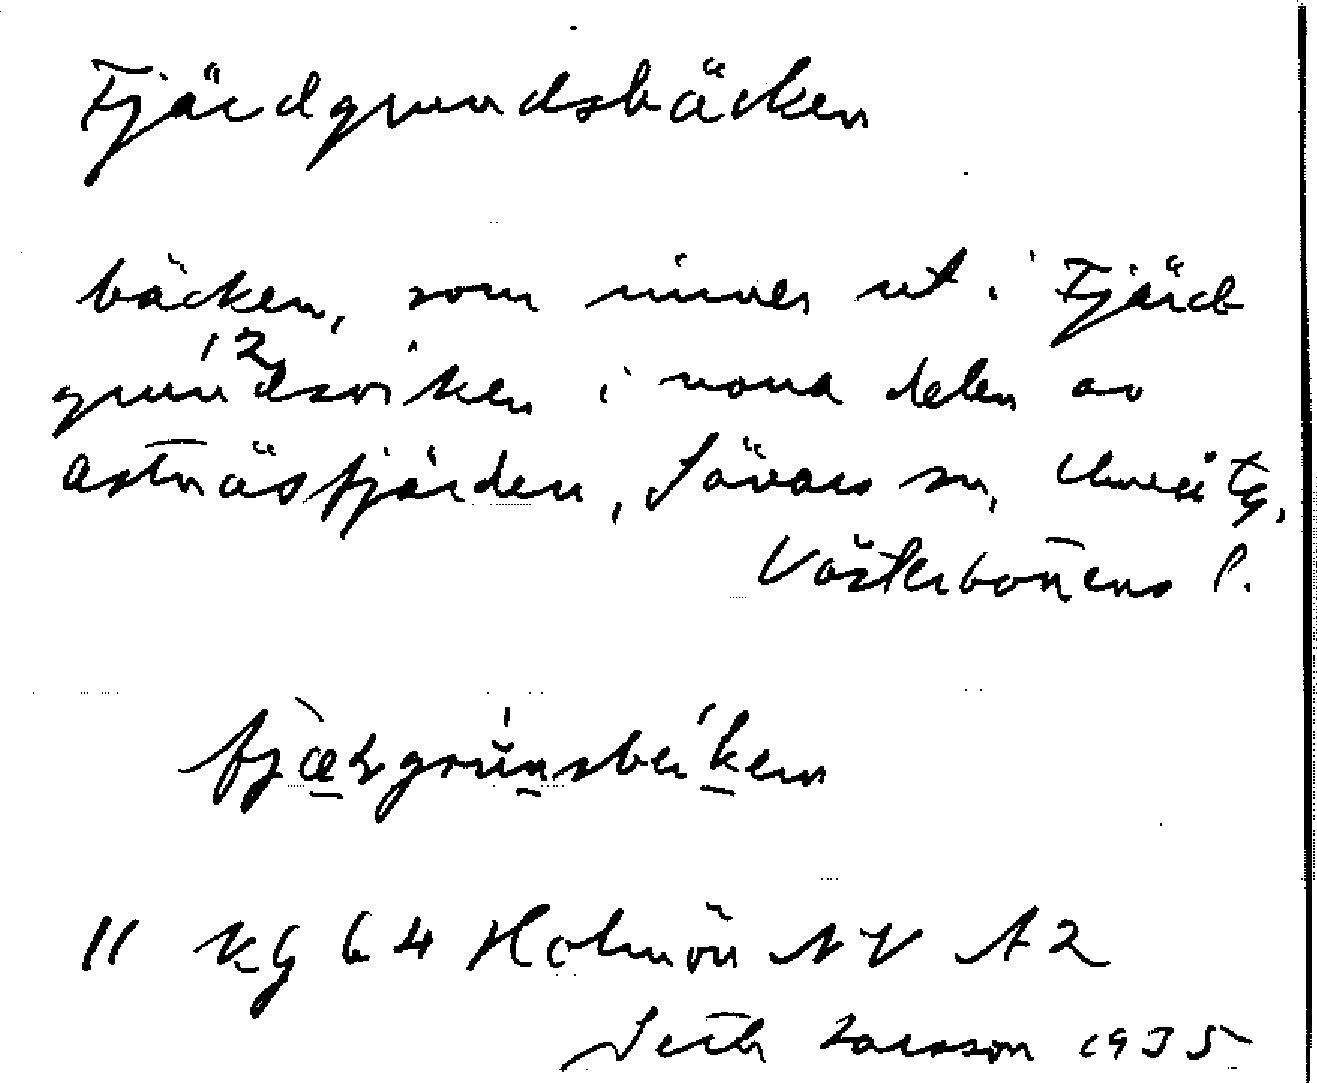 Fjärdgrundsbäcken
bäcken, som rinner ut i Fjärd
12
grundsviken i norra delen av
Östnäsfjärden, Sävars sn,
Västerbottens l.
11 kg 64 Holmön NV A2
Seth Larsson 1935